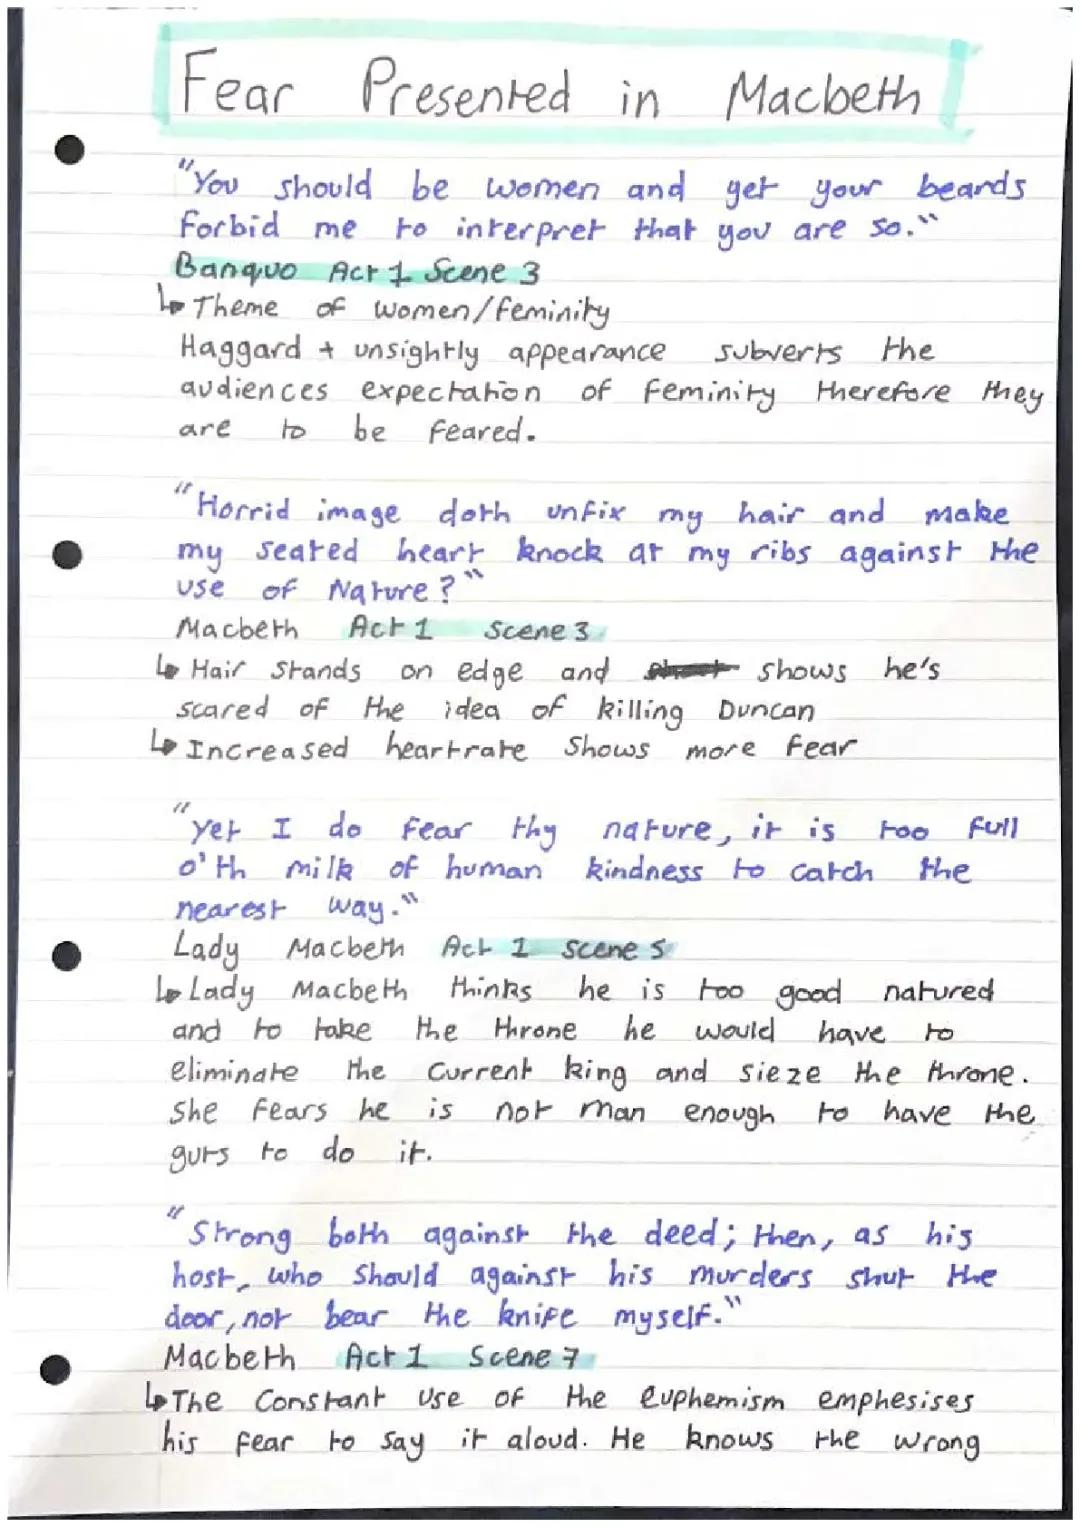 Fear Presented in Macbeth
"You should be women and yet your beards
forbid me to interpret that you are so."
Banquo Act 1 Scene 3
↳ Theme of women/feminity
Haggard + unsightly appearance subverts the
audiences expectation of feminity therefore they
are to be feared.
"Horrid image doth unfix my hair and make
my seated heart knock at my ribs against the
use of Nature?"
Macbeth Act 1 Scene 3
↳ Hair stands on edge and shows he's
scared of the idea of killing Duncan
↳ Increased heartrate shows more fear
"yet I do fear thy nature, it is too full
o'th milk of human kindness to catch the
nearest way."
Lady Macbeth Act 1 scene 5
↳ Lady Macbeth thinks he is too good natured
and to take the throne he would have to
eliminate the current king and sieze the throne.
She fears he is not man enough to have the
guts to do it.
"Strong both against the deed; then, as his
host, who should against his murders shut the
door, not bear the knife myself."
Macbeth Act 1 Scene 7
↳ The constant use of the euphemism emphesises
his fear to say it aloud. He knows the wrong